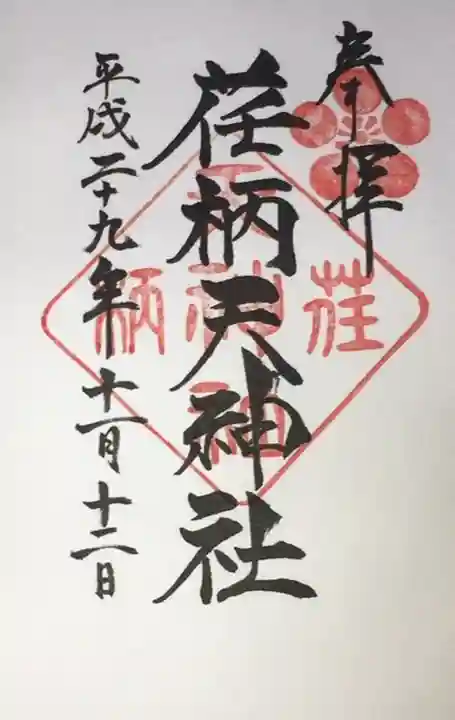 奉拝
荏柄天神社
平成二十九年十一月十二日
荏柄